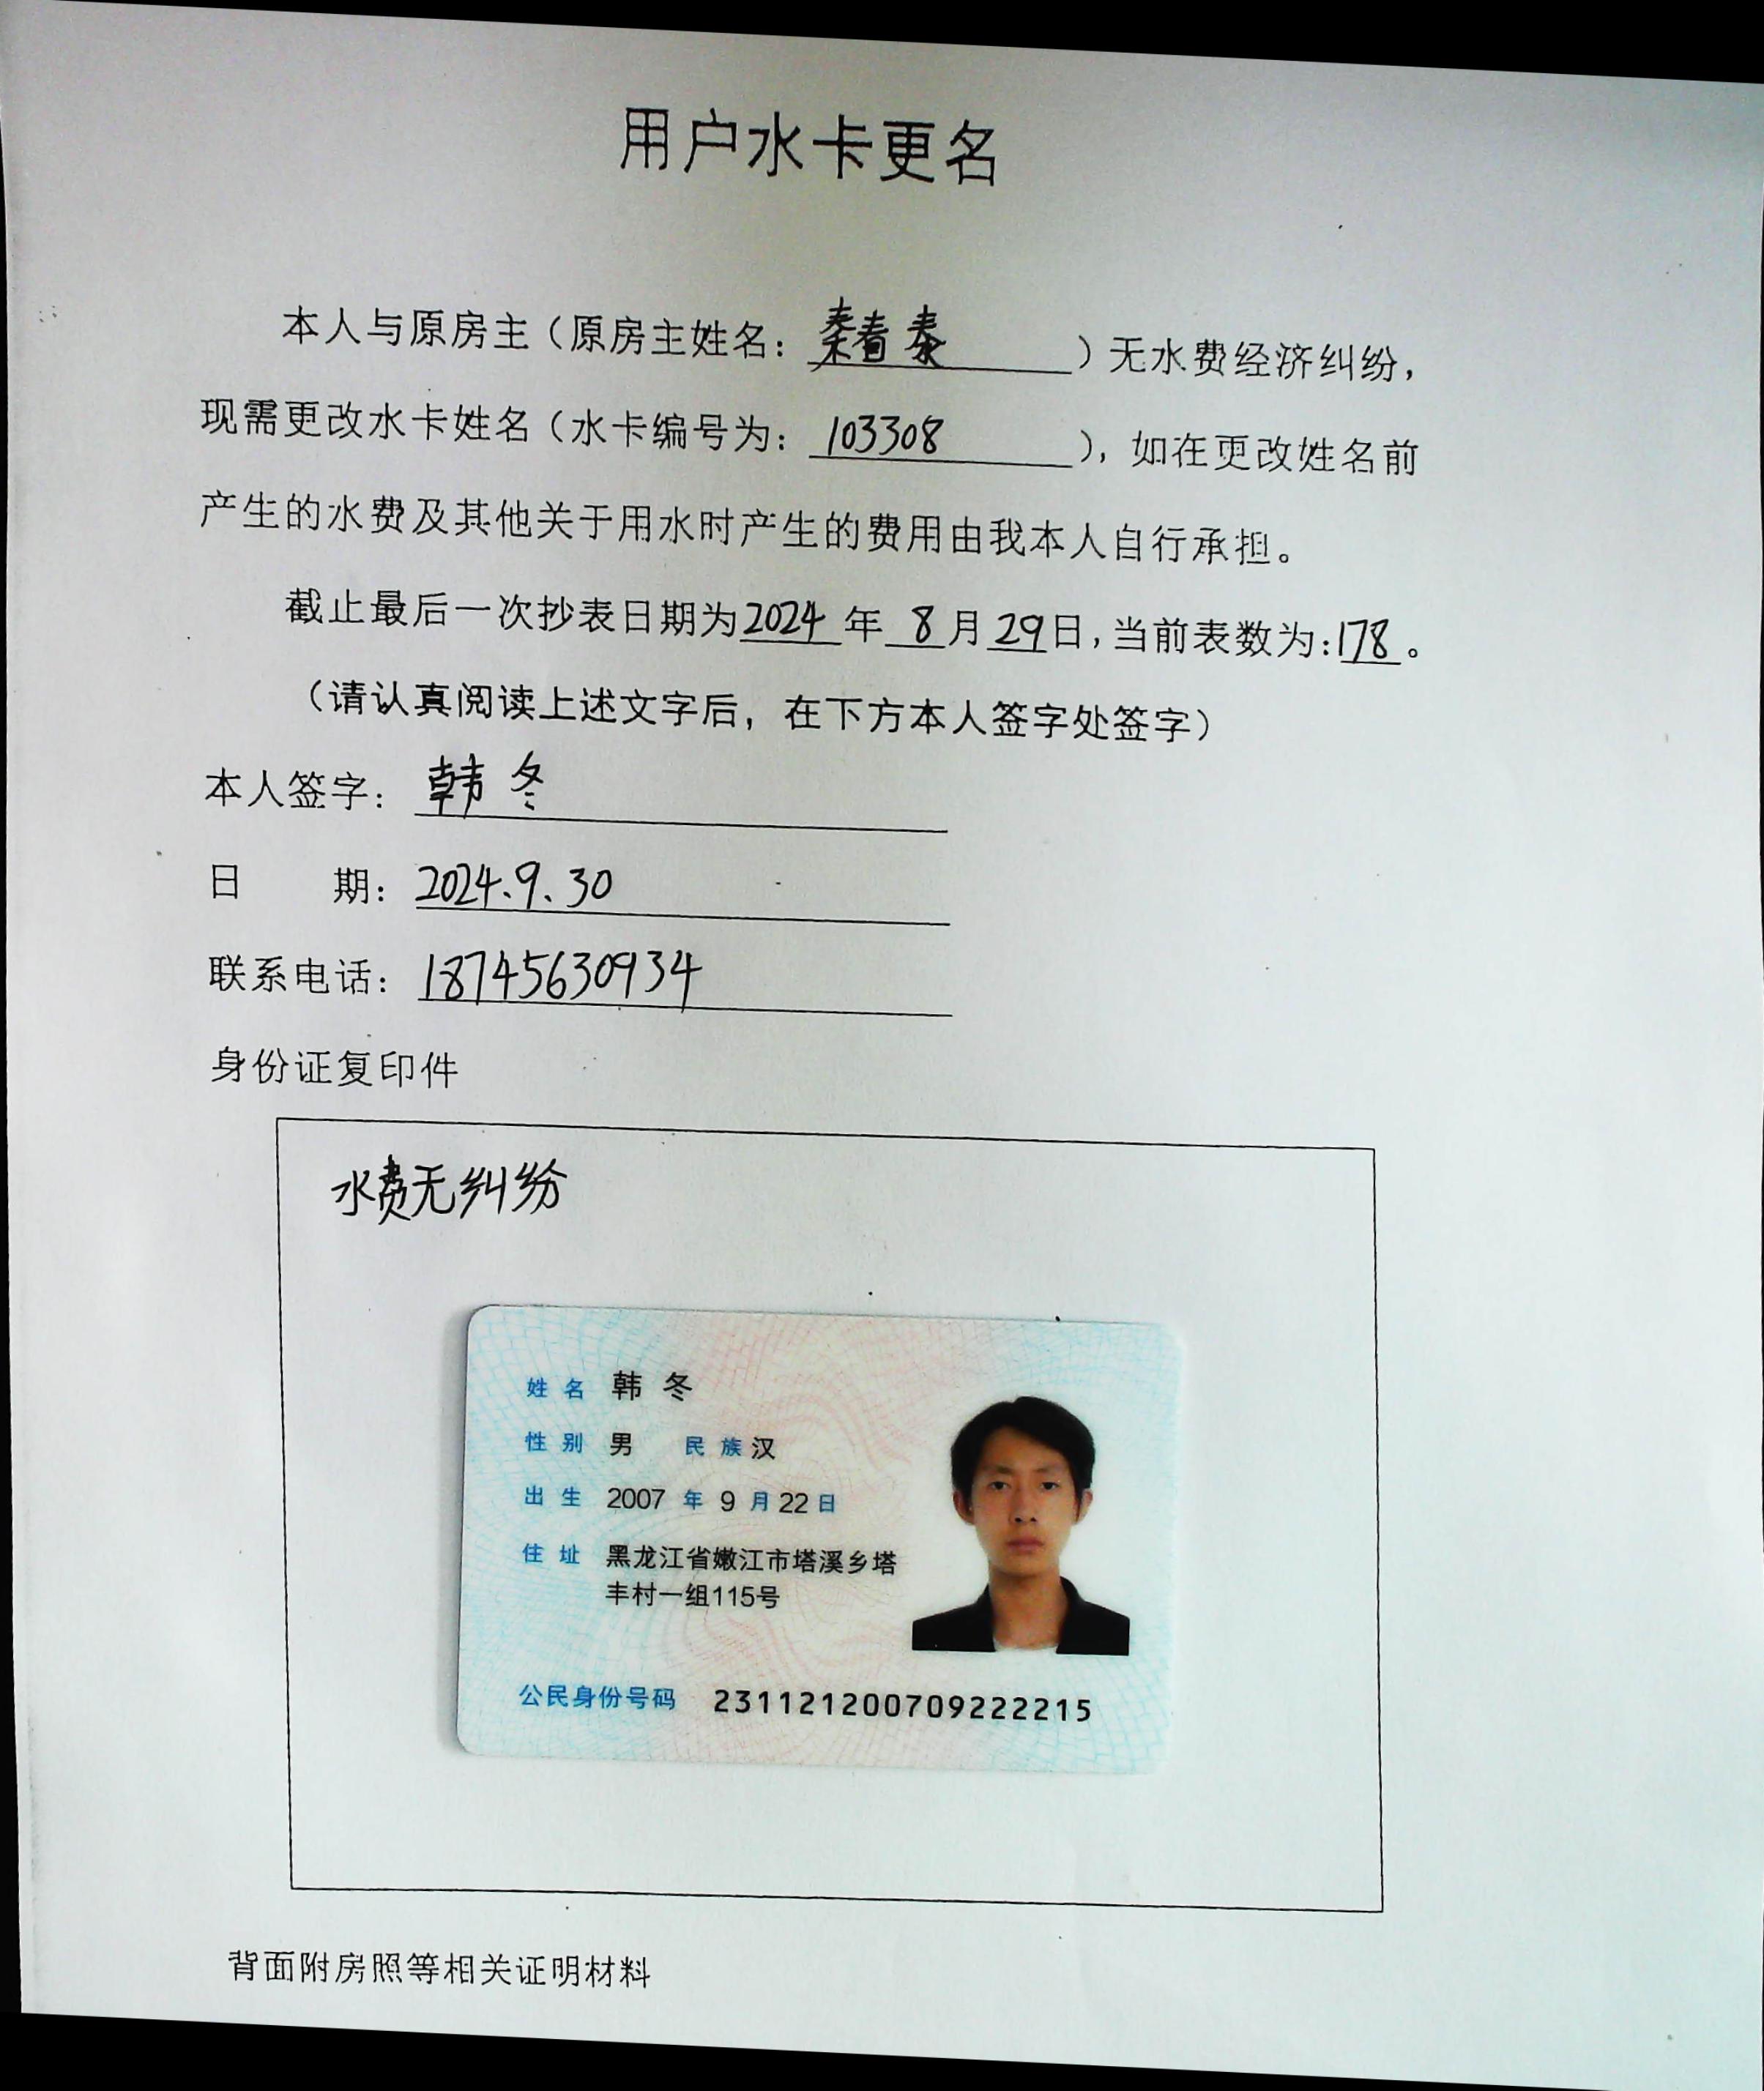 用户水卡更名
本人与原房主（原房主姓名：秦春泰）无水费经济纠纷，
现需更改水卡姓名（水卡编号为：103308），如在更改姓名前
产生的水费及其他关于用水时产生的费用由我本人自行承担。
截止最后一次抄表日期为2024年8月29日，当前表数为：178。
（请认真阅读上述文字后，在下方本人签字处签字）
本人签字：韩冬
日 期：2024.9.30
联系电话：18745630934
身份证复印件
水费无纠纷
姓名 韩冬
性别 男 民族 汉
出生 2007 年 9 月 22 日
住址 黑龙江省嫩江市塔溪乡塔
丰村一组115号
公民身份号码 231121200709222215
背面附房照等相关证明材料